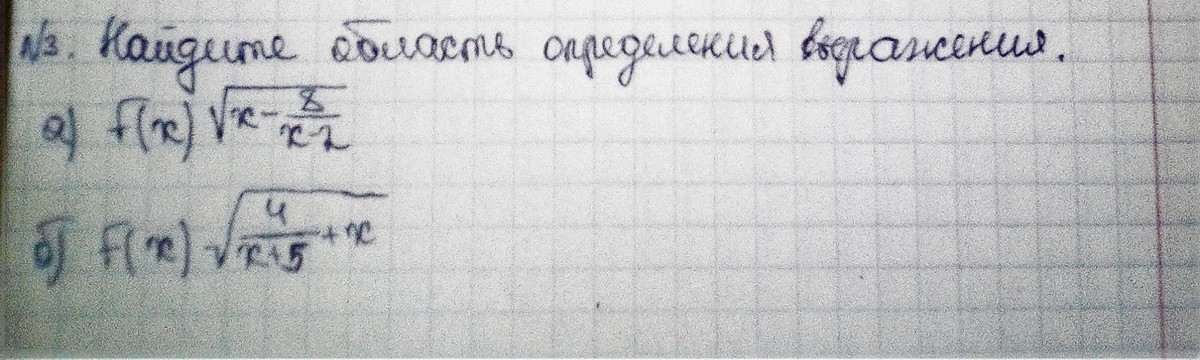 №3. Найдите область определения выражения.
а) f(x) √(x - 8/(x-2))
б) f(x) √(4/(x+5) + x)